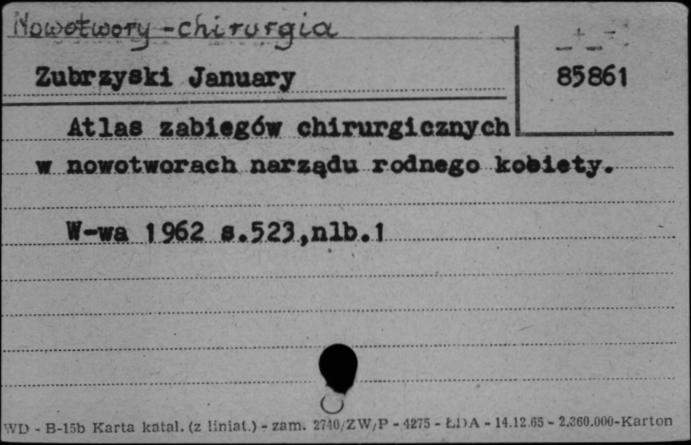 Nowotwory - chirurgia
Zubrzyski January
85861
Atlas zabiegów chirurgicznych
w nowotworach narządu rodnego kobiety.
W-wa 1962 s.523,nlb.1
WD - B-15b Karta katal. (z liniat.) - zam. 2740/ZW/P - 4275 - ŁDA - 14.12.65 - 2.360.000-Karton